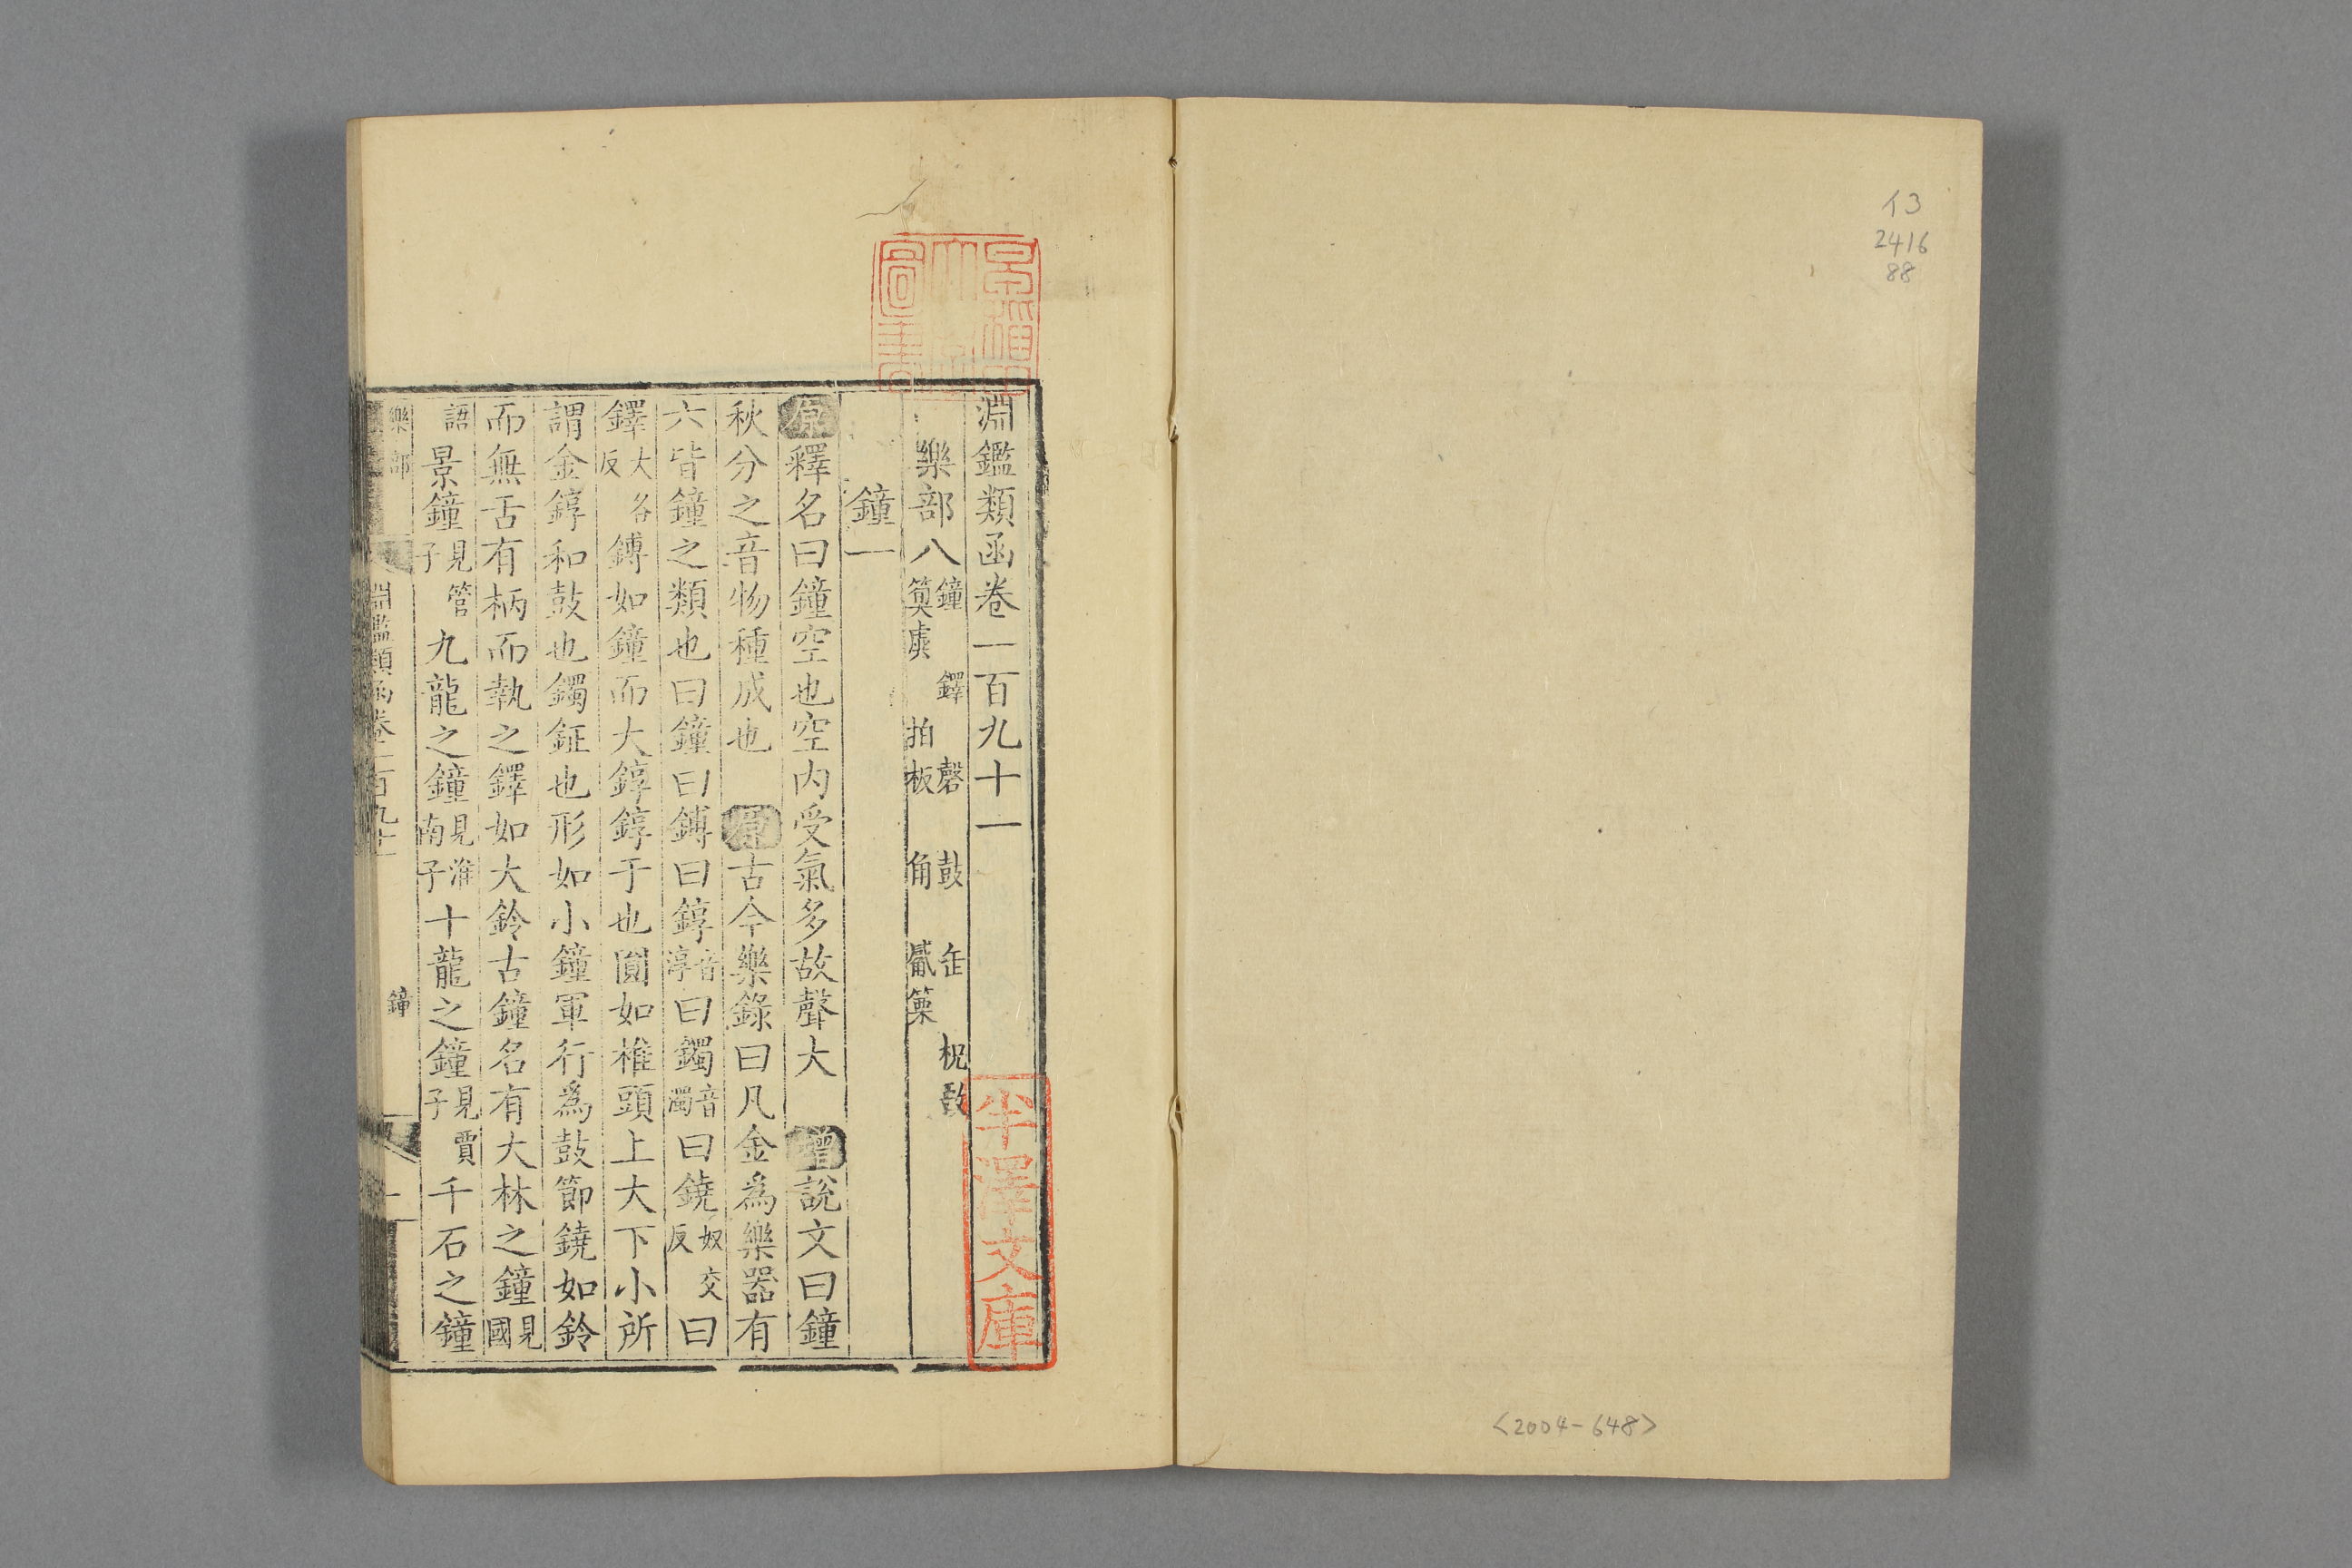 イ3
2416
88
<2004-648>
淵鑑類函卷一百九十一
樂部八鐘 鐸 磬 鼓 缶 柷敔
簨虡 拍板 角 觱篥
鐘一
原釋名曰鐘空也空内受氣多故聲大 增說文曰鐘
秋分之音物種成也 原古今樂錄曰凡金為樂器有
六皆鐘之類也曰鐘曰鎛曰錞音淳曰鐲音濁曰鐃奴交反曰
鐸大各反鎛如鐘而大錞錞于也圓如椎頭上大下小所
謂金錞和鼓也鐲鉦也形如小鐘軍行爲鼓節鐃如鈴
而無舌有柄而執之鐸如大鈴古鐘名有大林之鐘見國
語景鐘見管子九龍之鐘見淮南子十龍之鐘見賈子千石之鐘
樂部 淵鑑類函卷一百九十一 鐘 一
半澤文庫
圖書